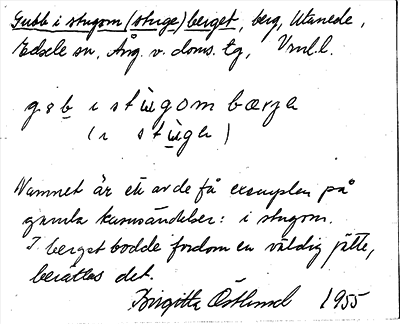 Gubb i stugom (stuge) berget, berg, Utanede,
Edsele sn, Ång. v. doms. tg, Vnl. l.
gɵb ɩ stùgom bærgɛ
(ɩ stùgɛ)
Namnet är ett av de få exemplen på
gamla kasusändelser: i stugom.
I berget bodde fordom en väldig jätte,
berättas det.
Birgitta Östlund 1955